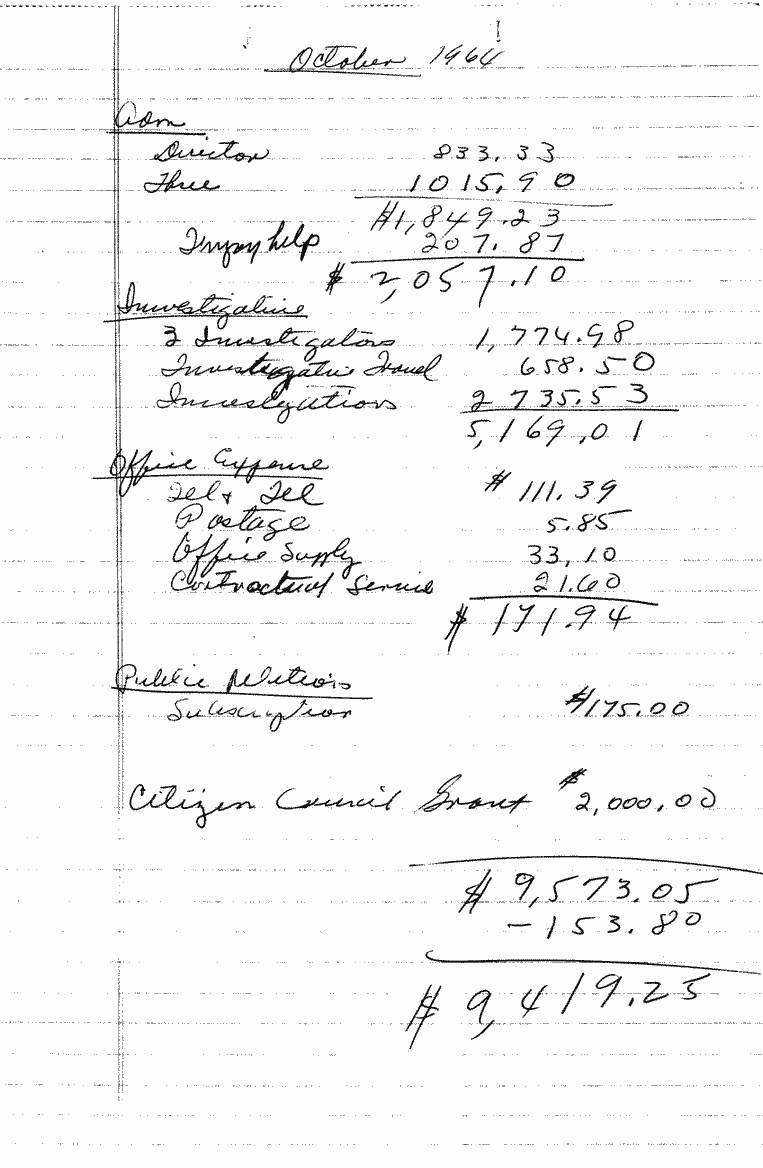 October 1964
Adm
Director 833.33
Three 1015.90
$1,849.23
Tempy help 207.87
$ 2,057.10
Investigative
3 Investigators 1,774.98
Investigative Travel 658.50
Investigations 2 735.53
5,169.01
Office Expense
Tel & Tel $ 111.39
Postage 5.85
Office Supply 33.10
Contractual Service 21.60
$ 171.94
Public Relations
Subscription $175.00
Citizen Council Grant $2,000.00
$ 9,573.05
- 153.80
$ 9,419.25